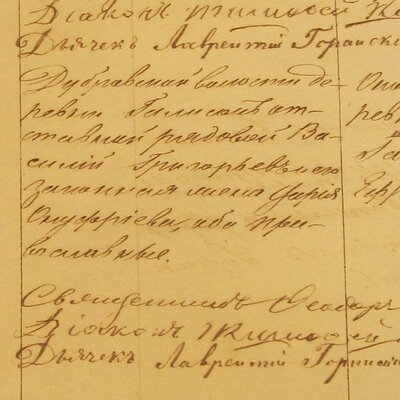 Діаконъ Тимофей
Дьячекъ Лаврентій Горанско
Дубравской волости де-
ревни Галисовъ от-
ставной рядовой Ва-
силій Григорьевъ и его
законная жена Дарія
Онуфріева, оба пра-
вославные.
Священникъ Ѳеодоръ
Діаконъ Тимофей
Дьячекъ Лаврентій Горанско
ревн